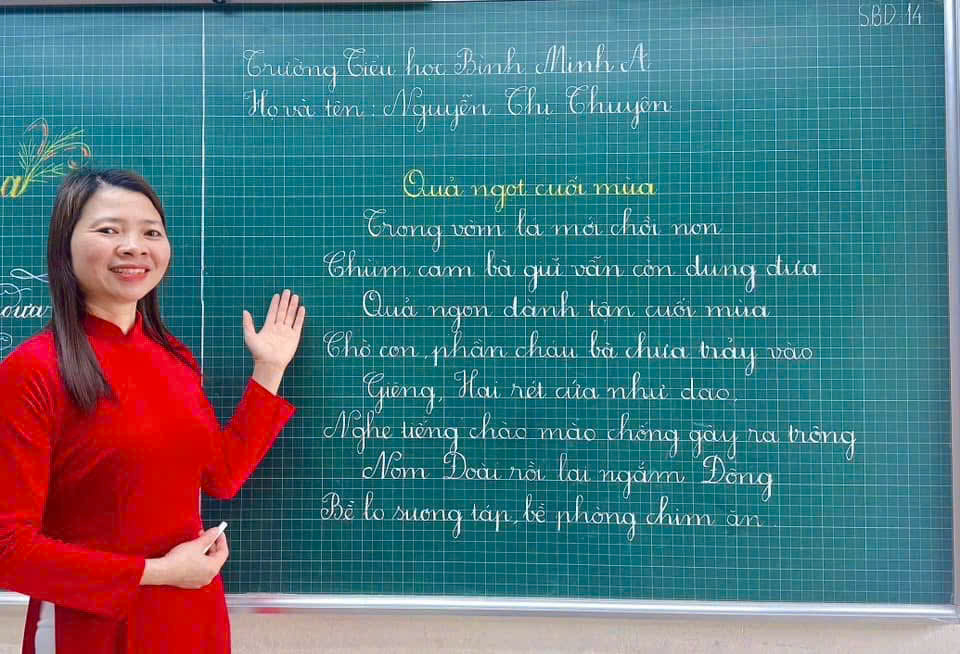 SBD.14
Trường Tiểu học Bình Minh A
Họ và tên: Nguyễn Thị Thuyên
Quả ngọt cuối mùa
Trong vòm lá mới chồi non
Chùm cam bà giữ vẫn còn đung đưa
Quả ngon dành tận cuối mùa
Chờ con, phần cháu bà chưa trảy vào
Giêng, Hai rét cứa như dao,
Nghe tiếng chào mào chống gậy ra trông
Nom Đoài rồi lại ngắm Đông
Bề lo sương táp, bề phòng chim ăn.